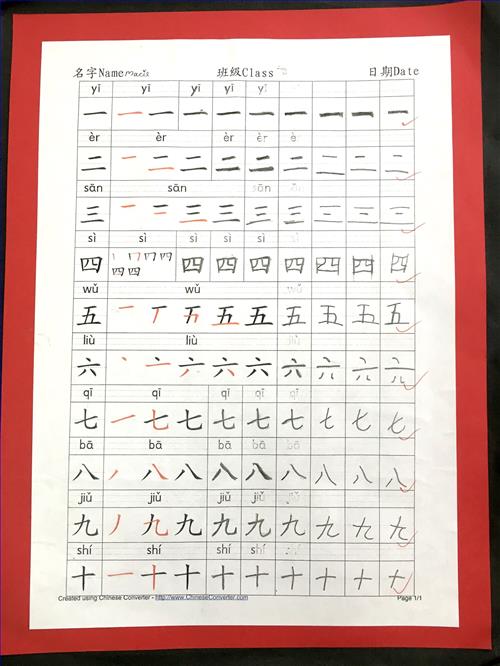 名字Name 班级Class 日期Date
yī yī yī yī yī
一 一 一 一 一 一 一 一 一 一
èr èr èr èr èr
二 一 二 二 二 二 二 二 二 二
sān sān sān
三 一 二 三 三 三 三 三 三 三
sì sì sì sì sì
四 丨 冂 四 四 四 四 四 四 四 四 四
wǔ wǔ wǔ
五 一 丅 五 五 五 五 五 五 五
liù liù liù
六 丶 亠 六 六 六 六 六 六 六
qī qī qī qī
七 一 七 七 七 七 七 七 七 七
bā bā bā bā bā
八 丿 八 八 八 八 八 八 八 八
jiǔ jiǔ jiǔ jiǔ
九 丿 九 九 九 九 九 九 九 九
shí shí shí shí
十 一 十 十 十 十 十 十 十 十
Created using Chinese Converter - http://www.ChineseConverter.com Page 1/1